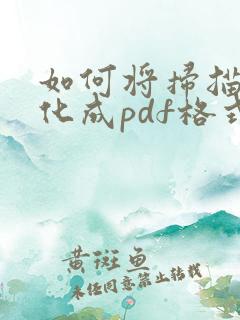 如何将扫描
化成pdf格式
黄斑鱼
未经同意禁止转载